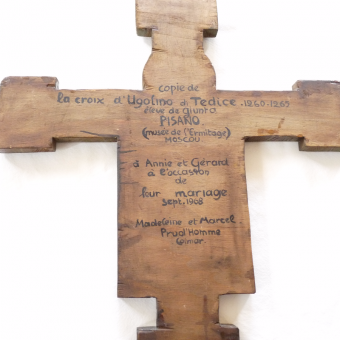 copie de
la croix d'Ugolino di Tedice. 1260-1269
élève de Giunta
PISANO
(musée de l'Ermitage)
MOSCOU
à Annie et Gérard
à l'occasion
de
leur mariage
sept. 1968
Madeleine et Marcel
Prud'Homme